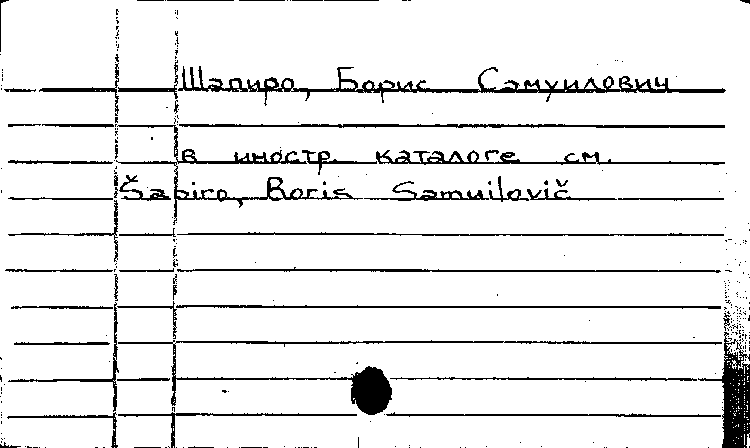 Шапиро, Борис Самуилович
в иностр. каталоге см.
Šapiro, Boris Samuilovič